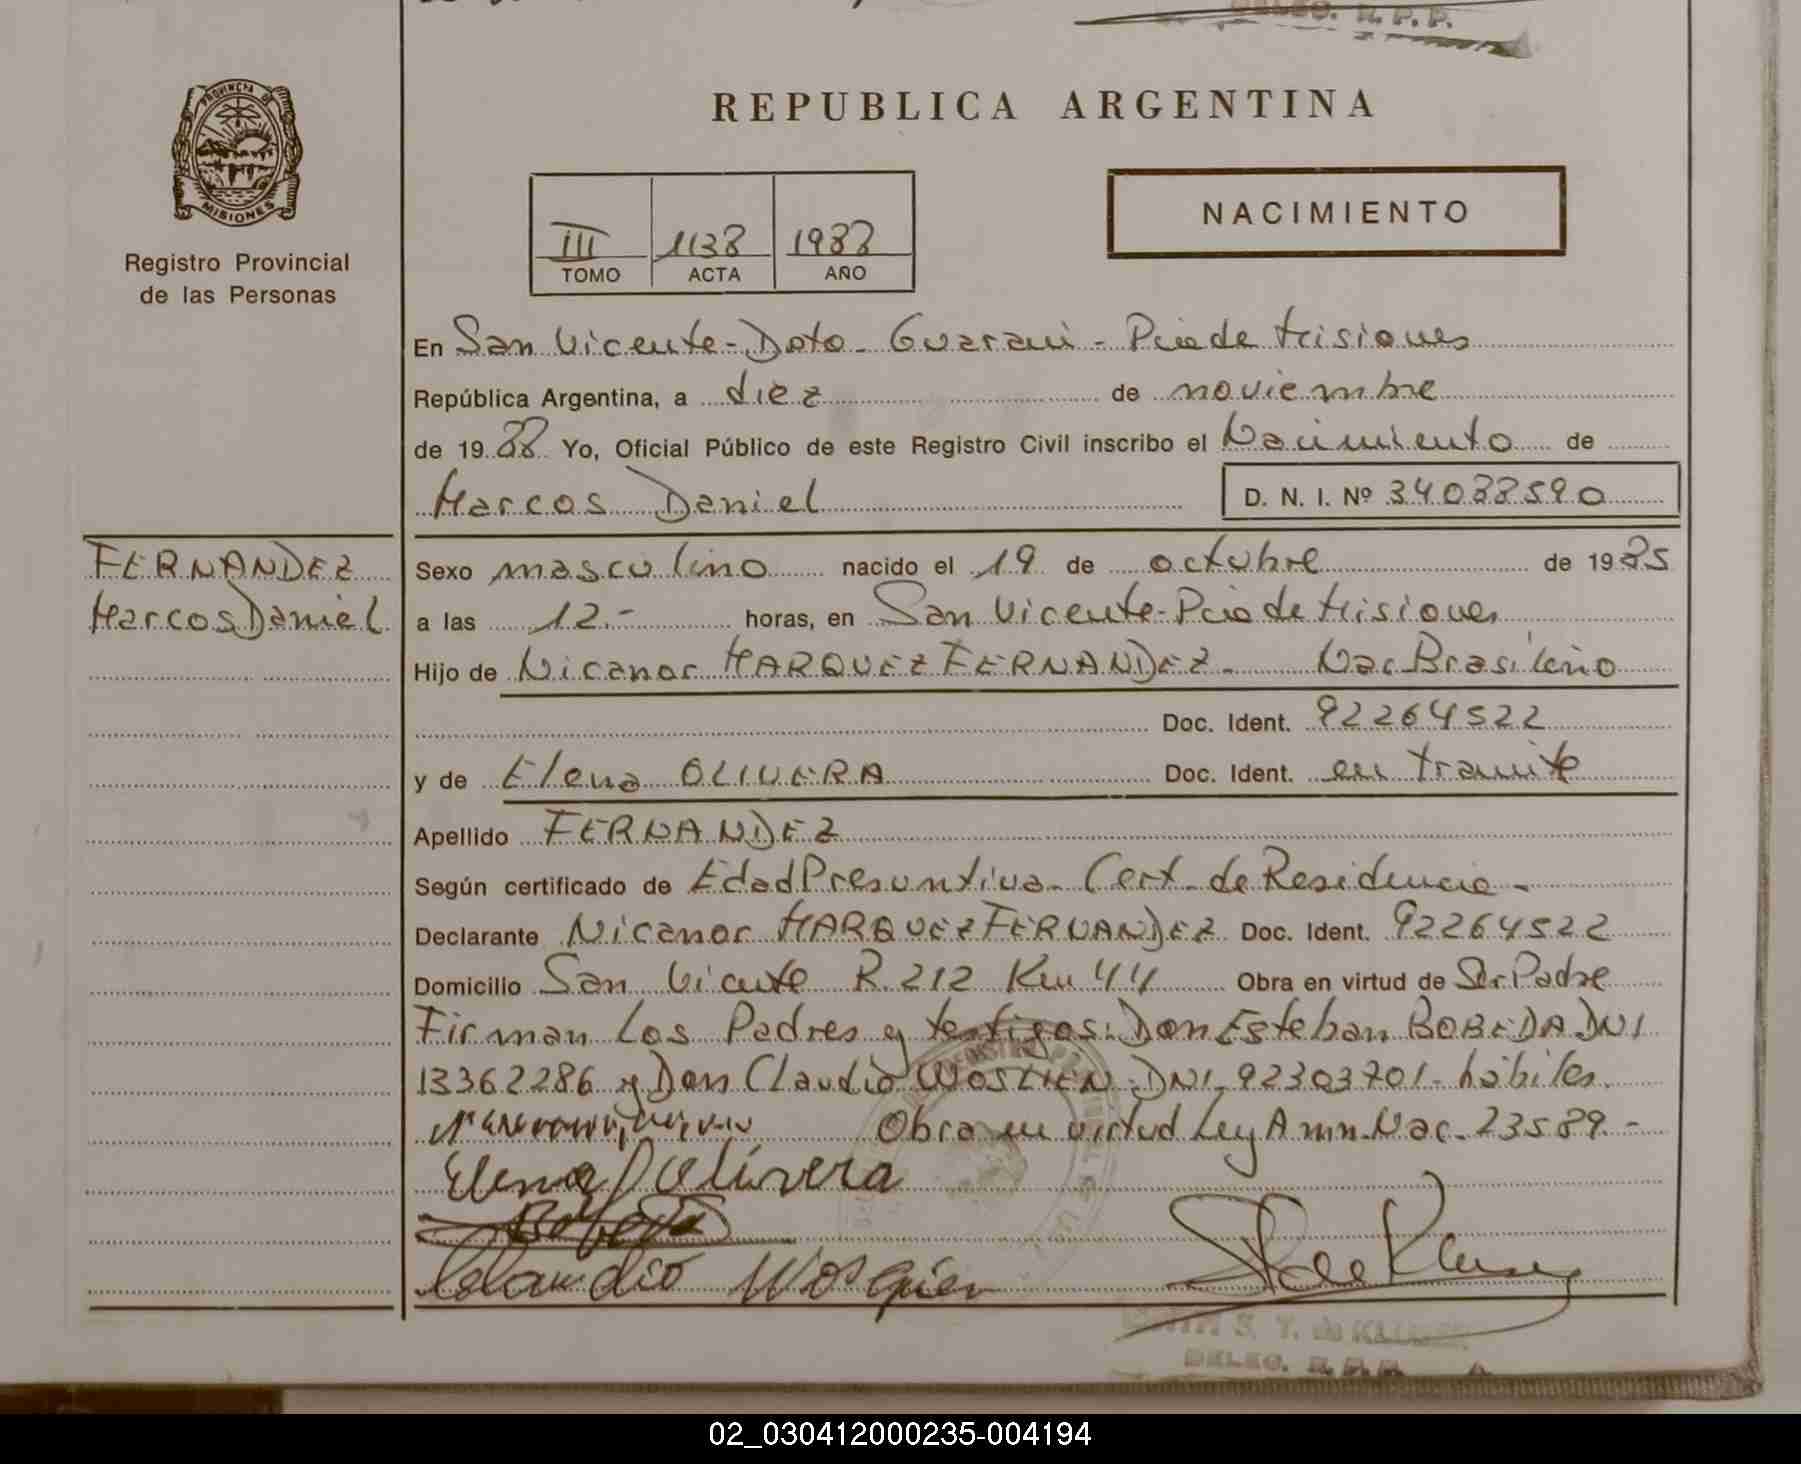 DELEG. R. P. P.
REPUBLICA ARGENTINA
PROVINCIA DE
MISIONES
Registro Provincial
de las Personas
III 1138 1988
TOMO ACTA AÑO
NACIMIENTO
En San Vicente - Dpto - Guarani - Pcia de Misiones
República Argentina, a diez de noviembre
de 1988 Yo, Oficial Público de este Registro Civil inscribo el Nacimiento de
Marcos Daniel D. N. I. Nº 34038590
FERNANDEZ
Marcos Daniel
Sexo masculino nacido el 19 de octubre de 1985
a las 12.- horas, en San Vicente - Pcia de Misiones
Hijo de Nicanor MARQUEZ FERNANDEZ - Nac Brasileño
Doc. Ident. 92264522
y de Elena OLIVERA Doc. Ident. en tramite
Apellido FERNANDEZ
Según certificado de Edad Presuntiva - Cert. de Residencia -
Declarante Nicanor MARQUEZ FERNANDEZ Doc. Ident. 92264522
Domicilio San Vicente R. 212 Km 44 Obra en virtud de Ser Padre
Firman Los Padres y testigos: Don Esteban BOBEDA DNI
13362286 y Don Claudio WOSLIEN - DNI - 92303701 - hábiles.
Obra en virtud Ley Amn. Nac. 23589.-
Elena Olivera
Bobeda
Claudio
S. Y. de
DELEG. R. P. P.
02_030412000235-004194